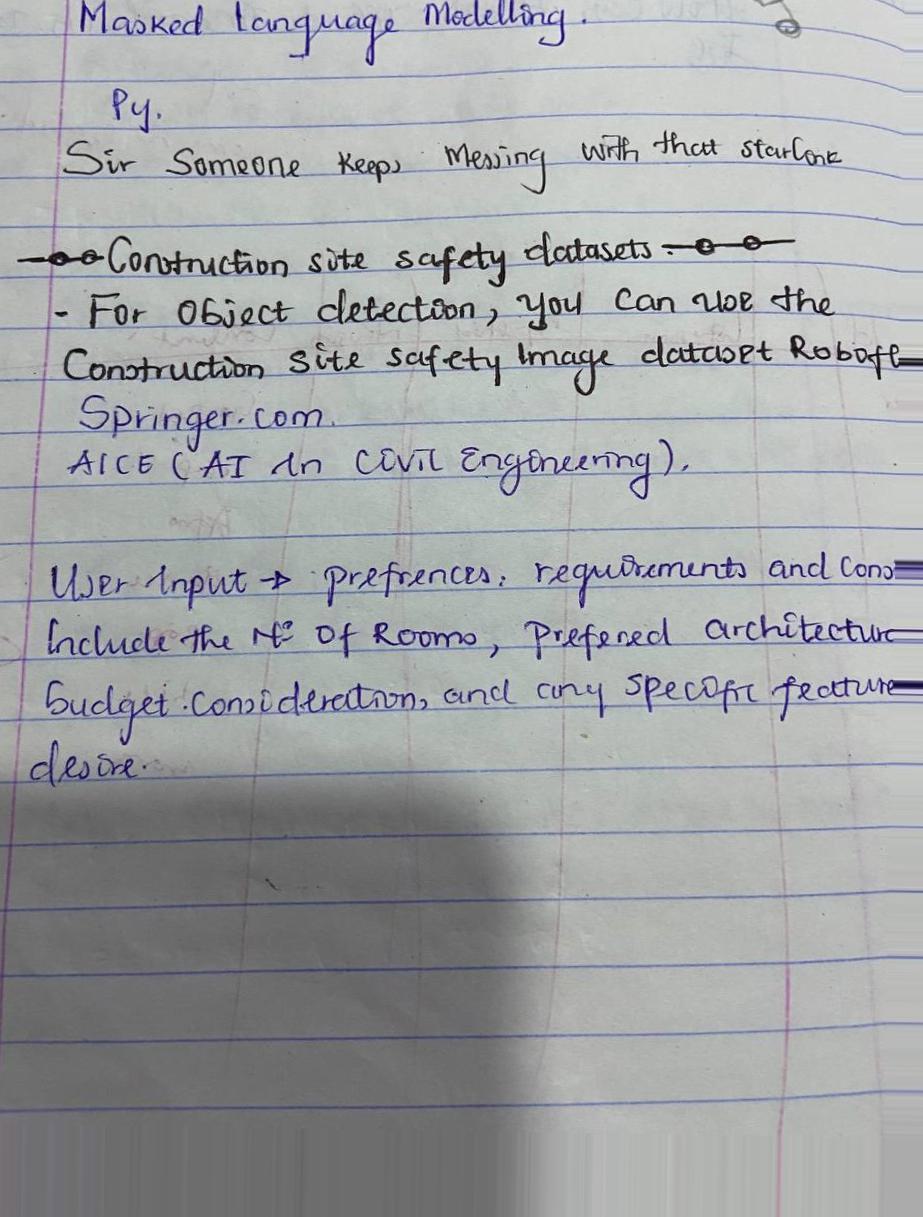 Masked Language Modelling.
Py.
Sir Someone keeps Messing with that
Construction site safety datasets.
- For Object detection, you can use the
Construction Site safety Image dataset
Springer.com.
AICE (AI In Civil Engineering).
User Input → prefrences, requirements and
Include the Nº Of Rooms, Prefered architectur
budget consideration, and any specific feature
desire.